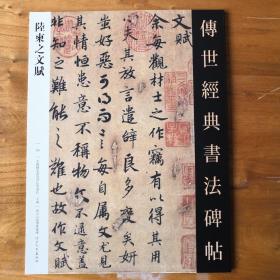 傳世經典書法碑帖
陸柬之文賦
文賦
余每觀材士之作竊有以得其用
心夫其放言遣辭良多變矣妍
蚩好惡可得而言每自屬文尤見
其情恒患意不稱物文不逮意蓋
非知之難能之難也故作文賦